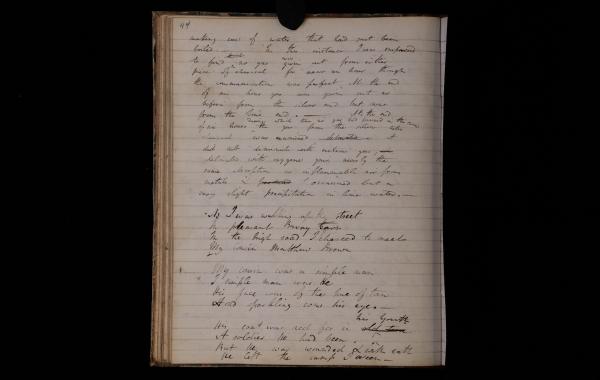 94
making use of water, that had not been
boiled. In this instance I was surprised
to find that no gas was given out from either
piece of charcoal for near an hour though
the communication was perfect. At the end
of an hour gas was given out as
before from the silver end but none
from the zinc end. — At the end
of two hours the gas from the silver
was examined it
did not diminish with nitrous gas; —
with oxygene gave nearly the
same absorption no inflammable nor
occurred but a
very slight precipitation in lime water. —
As I was walking up the street
In pleasant Burny town
In the high road I chanced to meet
My cousin Matthew Brown
My cousin was a simple man
A simple man was he
His face was of the hue of tan
And sparkling was his eye. —
His coat was red for in his youth
A soldier he had been
But he was wounded & with
He left the camp I ween —